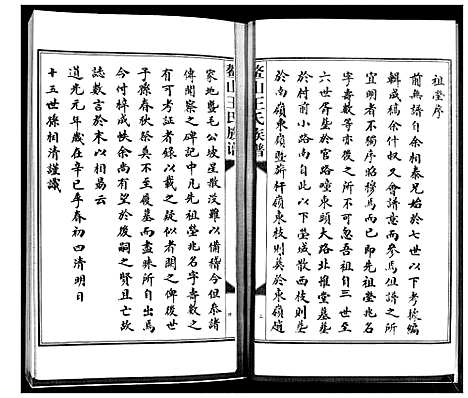 祖塋序
前無譜自余相泰兄始於七世以下考核編
輯成稿余什叔又會譜意而參焉但譜之所
宜明者不獨序昭穆焉而已即先祖塋兆名
字壽數等亦後之所不可忽吾祖自三世至
六世胥塟於官路嘴東頭大路北雅堂墓墓
於村前小路南自此以下塋域散西枝則墓
於南嶺東嶺暨莽行嶺東枝則葬於東嶺迨
家地暨毛公坡星散沒難以備稽今但參諸
傳聞察之碑記中凡先祖塋兆名字壽數之
有可考証者錄以載之疑似者闕之俾後世
子孫春秋祭奠不至履墓而盡昧所自出焉
今付梓成帙余尚有望於後嗣之賢且亡故
誌數言於末以相勗云
道光元年歲在辛巳年春初四清明日
十五世孫相清謹識
鰲山王氏族譜
鰲山王氏族譜